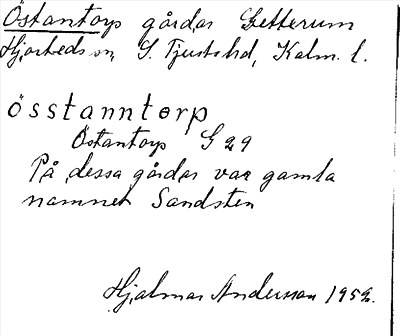 Östantorp gårdar Getterum
Hjorteds sn, S. Tjusts hd, Kalm. l.
össtanntorp
Östantorp G 29
På dessa gårdar var gamla
namnet Sandsten
Hjalmar Andersson 1952.